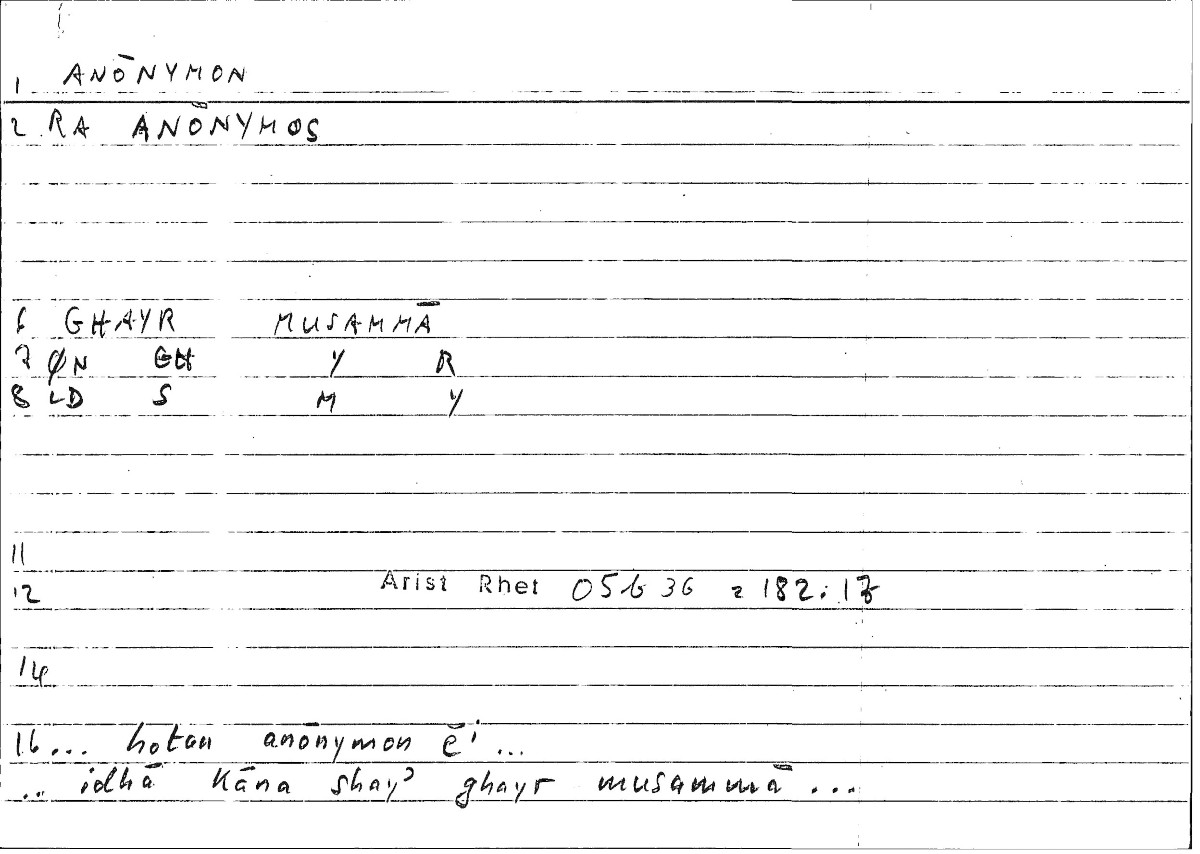 1 ANŌNYMON
2 RA ANŌNYMOS
6 GHAYR MUSAMMĀ
7 ØN GH Y R
8 LD S M Y
11
12 Arist Rhet 05b 36 = 182:17
14
16... hotan anōnymon ē' ...
... idhā kāna shayʾ ghayr musammā ...